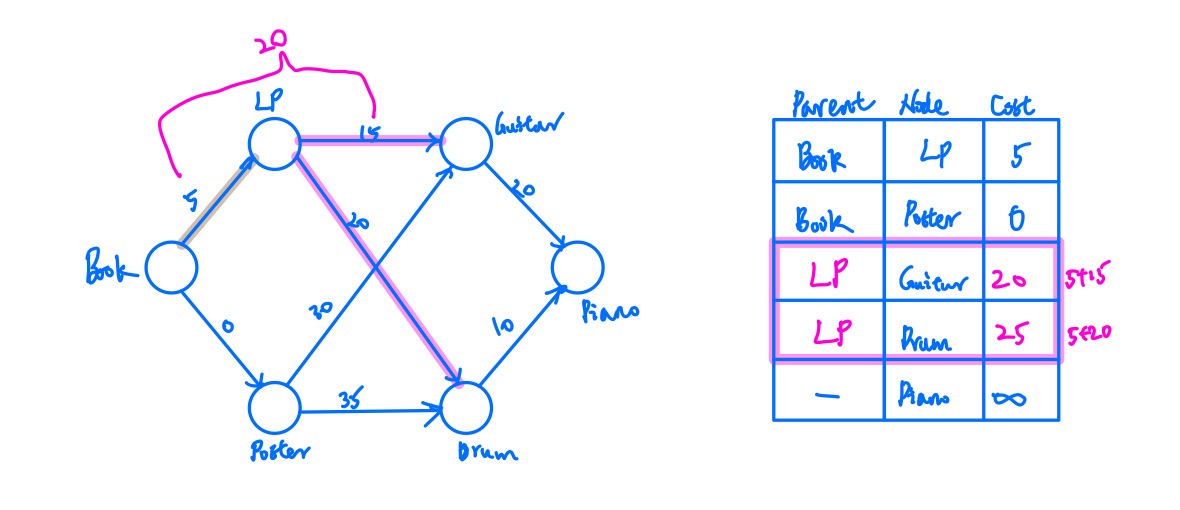 20
LP
15
Guitar
5
20
20
Book
Piano
0
30
10
35
Poster
Drum
Parent Node Cost
Book LP 5
Book Poster 0
LP Guitar 20 5+15
LP Drum 25 5+20
— Piano ∞